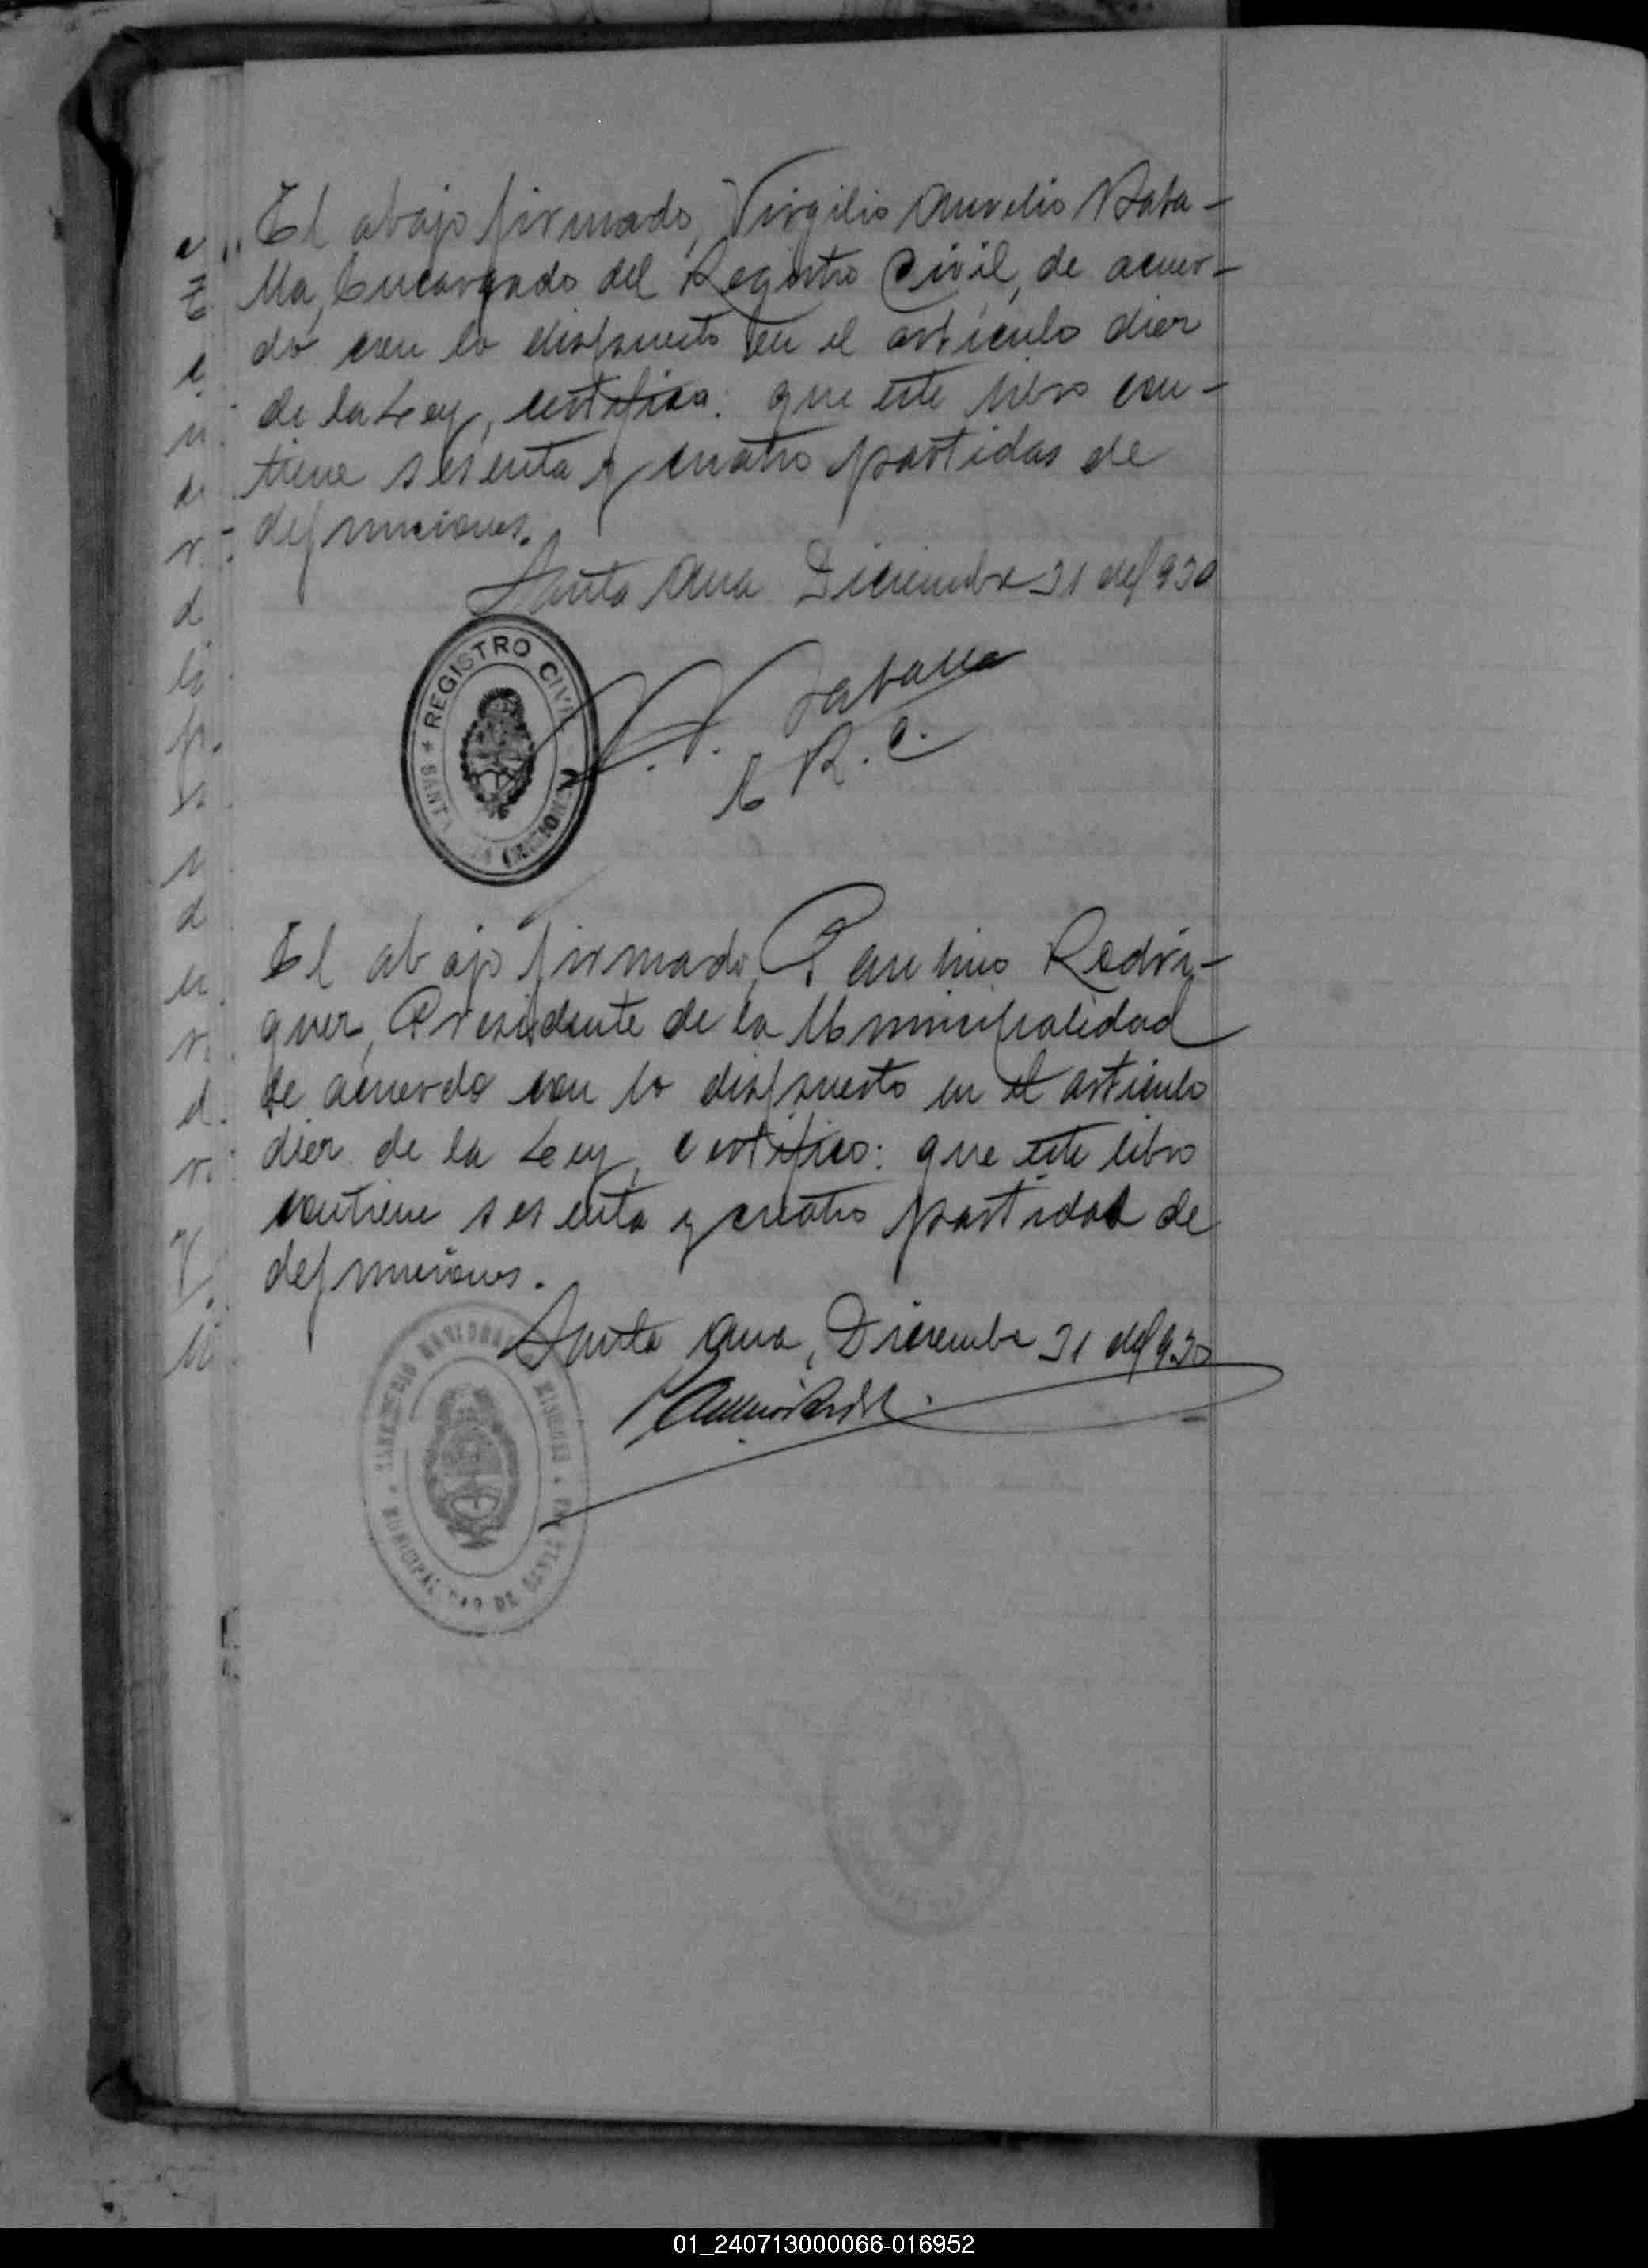 El abajo firmado, Virgilio Aurelio Zaba-
lla, Encargado del Registro Civil, de acuer-
do con lo dispuesto en el artículo diez
de la Ley, certifico: que este libro con-
tiene sesenta y cuatro partidas de
defunciones.
Santa Ana Diciembre 31 de 930
REGISTRO CIVIL
SANTA MISIONES
V. A. Zaballa
E R. C.
El abajo firmado, Paulino Rodri-
guez, Presidente de la Municipalidad
de acuerdo con lo dispuesto en el artículo
diez de la Ley, certifico: que este libro
contiene sesenta y cuatro partidas de
defunciones.
Santa Ana, Diciembre 31 de 930
MUNICIPALIDAD DE
01_240713000066-016952